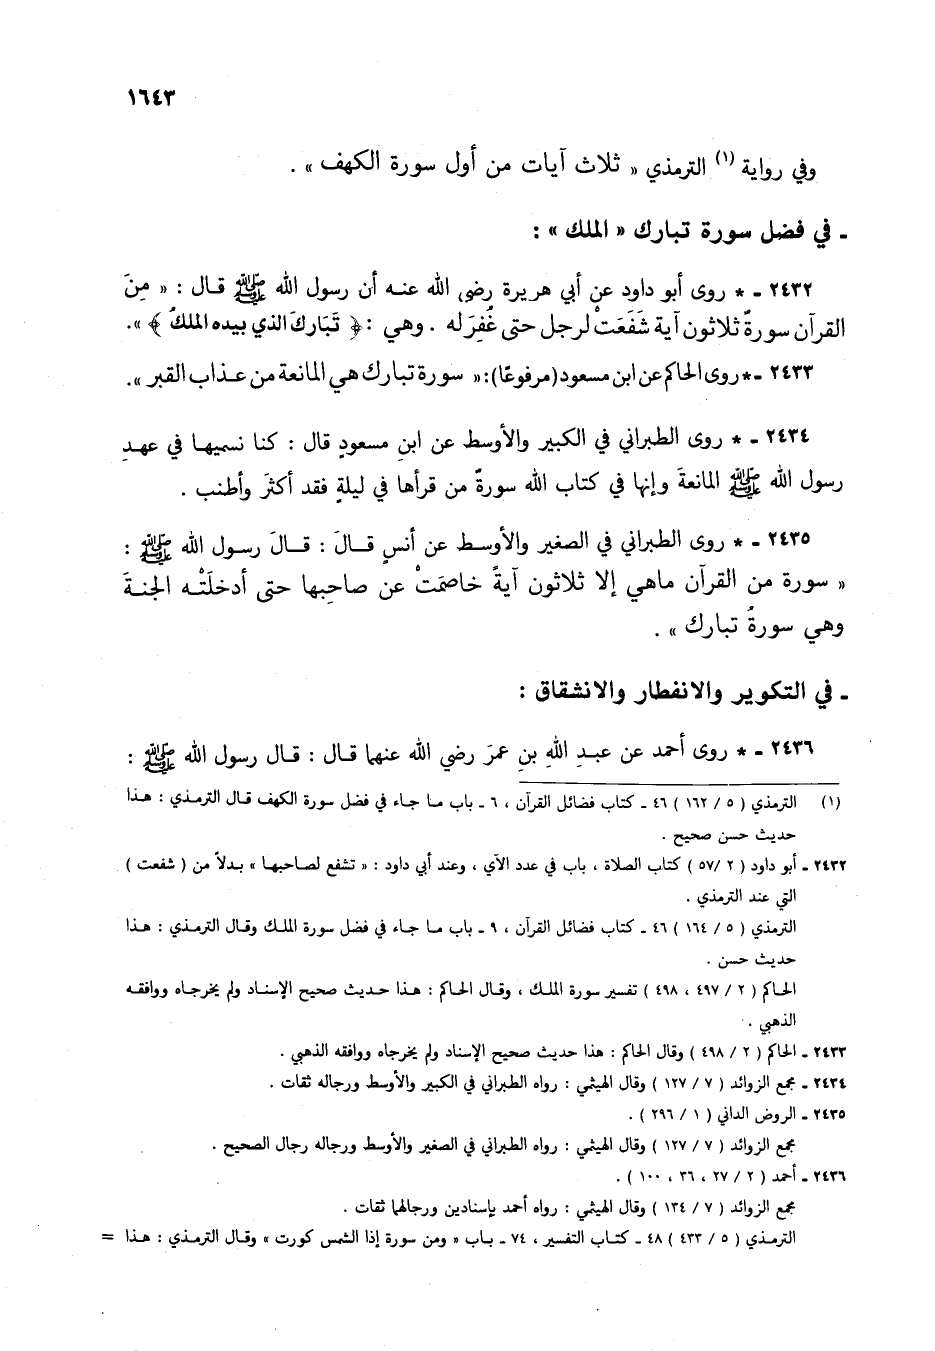 ١٦٤٣
وفي رواية (١) الترمذي « ثلاث آيات من أول سورة الكهف » .
ـ في فضل سورة تبارك « الملك » :
٢٤٣٢ ـ * روى أبو داود عن أبي هريرة رضي الله عنه أن رسول الله ﷺ قال : « مِنَ
القرآن سورةٌ ثلاثون آية شَفَعَتْ لرجل حتى غُفِرَ له . وهي : ﴿ تَبَارَكَ الذي بيده الملكُ ﴾ ».
٢٤٣٣ ـ* روى الحاكم عن ابن مسعود (مرفوعًا): « سورة تبارك هي المانعة من عذاب القبر ».
٢٤٣٤ ـ * روى الطبراني في الكبير والأوسط عن ابنِ مسعودٍ قال : كنا نسميها في عهدِ
رسول الله ﷺ المانعةَ وإنها في كتاب الله سورةٌ من قرأها في ليلةٍ فقد أكثرَ وأطنب .
٢٤٣٥ ـ * روى الطبراني في الصغير والأوسط عن أنسٍ قالَ : قالَ رسول الله ﷺ :
« سورة من القرآن ماهي إلا ثلاثون آيةً خاصمَتْ عن صاحبِها حتى أدخلَتْه الجنةَ
وهي سورةُ تبارك » .
ـ في التكوير والانفطار والانشقاق :
٢٤٣٦ ـ * روى أحمد عن عبدِ اللهِ بنِ عمرَ رضي الله عنهما قال : قال رسول الله ﷺ :
(١) الترمذي ( ٥ / ١٦٢ ) ٤٦ ـ كتاب فضائل القرآن ، ٦ ـ باب ما جاء في فضل سورة الكهف قال الترمذي : هذا
حديث حسن صحيح .
٢٤٣٢ ـ أبو داود ( ٢ /٥٧ ) كتاب الصلاة ، باب في عدد الآي ، وعند أبي داود : « تشفع لصاحبها » بدلاً من ( شفعت )
التي عند الترمذي .
الترمذي ( ٥ / ١٦٤ ) ٤٦ ـ كتاب فضائل القرآن ، ٩ ـ باب ما جاء في فضل سورة الملك وقال الترمذي : هذا
حديث حسن .
الحاكم ( ٢ / ٤٩٧ ، ٤٩٨ ) تفسير سورة الملك ، وقال الحاكم : هذا حديث صحيح الإسناد ولم يخرجاه ووافقه
الذهبي .
٢٤٣٣ ـ الحاكم ( ٢ / ٤٩٨ ) وقال الحاكم : هذا حديث صحيح الإسناد ولم يخرجاه ووافقه الذهبي .
٢٤٣٤ ـ مجمع الزوائد ( ٧ / ١٢٧ ) وقال الهيثمي : رواه الطبراني في الكبير والأوسط ورجاله ثقات .
٢٤٣٥ ـ الروض الداني ( ١ / ٢٩٦ ) .
مجمع الزوائد ( ٧ / ١٢٧ ) وقال الهيثمي : رواه الطبراني في الصغير والأوسط ورجاله رجال الصحيح .
٢٤٣٦ ـ أحمد ( ٢ / ٢٧ ، ٣٦ ، ١٠٠ ) .
مجمع الزوائد ( ٧ / ١٣٤ ) وقال الهيثمي : رواه أحمد بإسنادين ورجالهما ثقات .
الترمذي ( ٥ / ٤٣٣ ) ٤٨ ـ كتاب التفسير ، ٧٤ ـ باب « ومن سورة إذا الشمس كورت » وقال الترمذي : هذا =